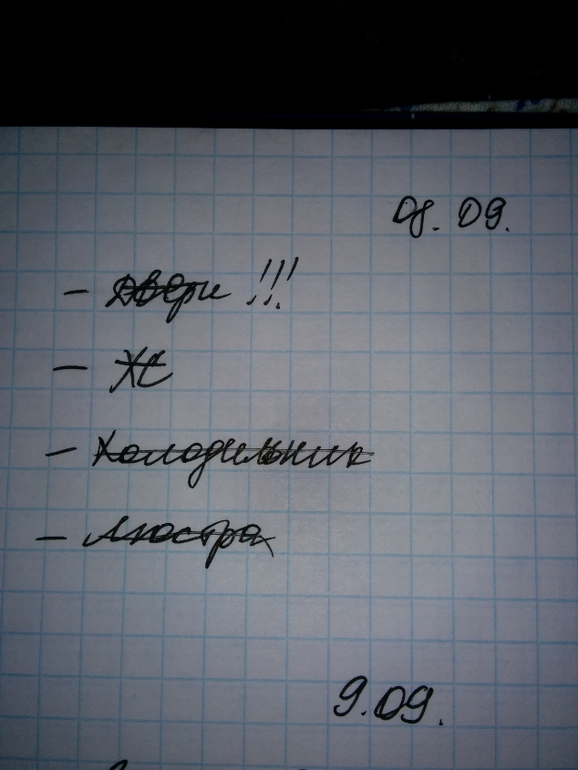 08. 09.
- Двери !!!
- ХС
- Холодильник
- Люстра
9.09.